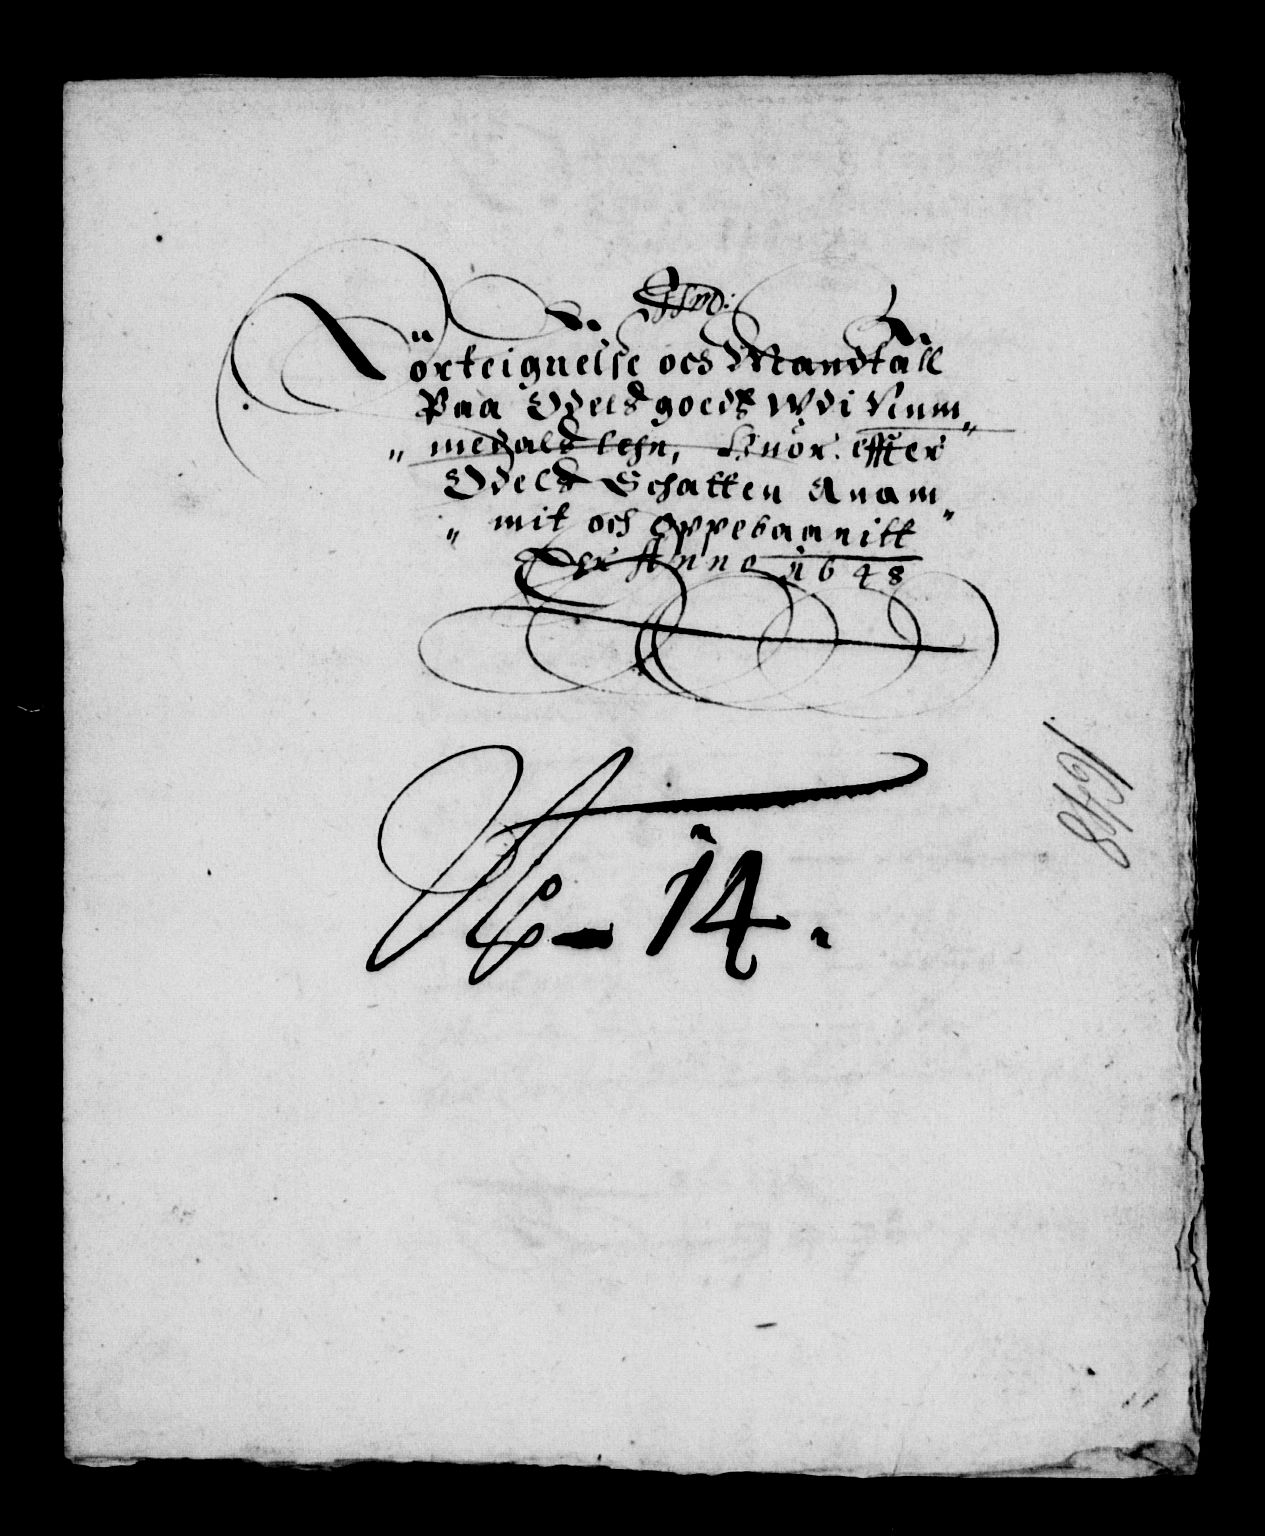 Förteignelse och Mandtall
Paa Odels goeds Wdi Num„
„ medals lehn, huor effter
Odels Schatten Anam„
„ mit och Oppebaaritt
Pro Anno 1648
1648
No – 14.